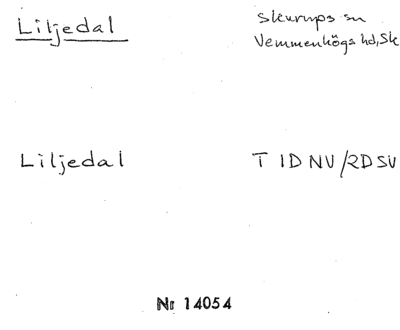 Liljedal
Skurups sn
Vemmenhögs hd, Sk
Liljedal
T 1D NV/2D SV
Nr 14054